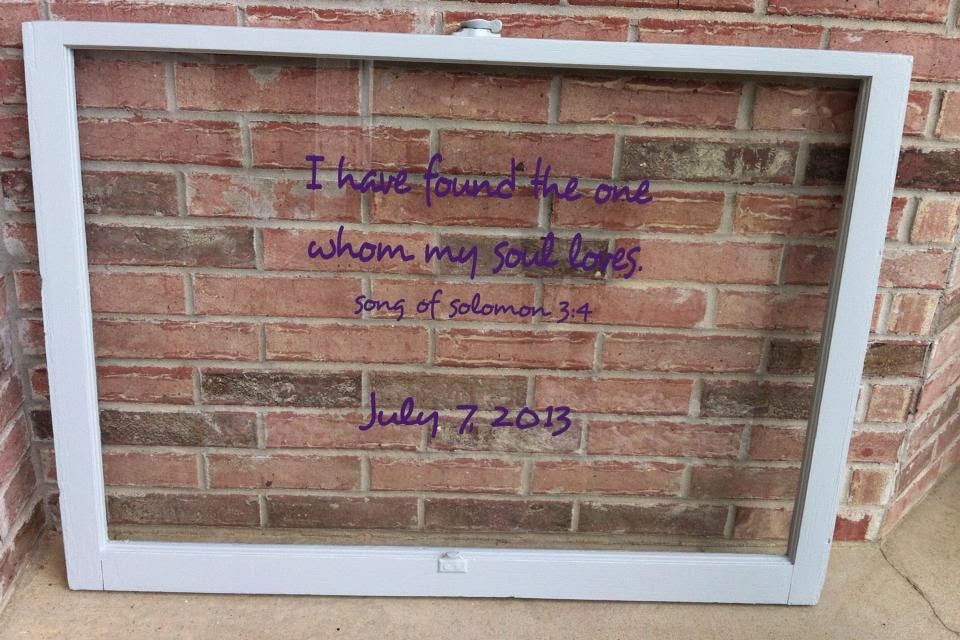 I have found the one
whom my soul loves.
song of solomon 3:4
July 7, 2013